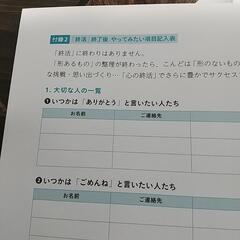 付録2 「終活」終了後 やってみたい項目記入表
「終活」に終わりはありません。
「形あるもの」の整理が終わったら、こんどは「形のないもの
な挑戦・思い出づくり…「心の終活」でさらに豊かでサクセス
1. 大切な人の一覧
❶いつかは「ありがとう」と言いたい人たち
お名前 ご連絡先
❷いつかは「ごめんね」と言いたい人たち
お名前 ご連絡先